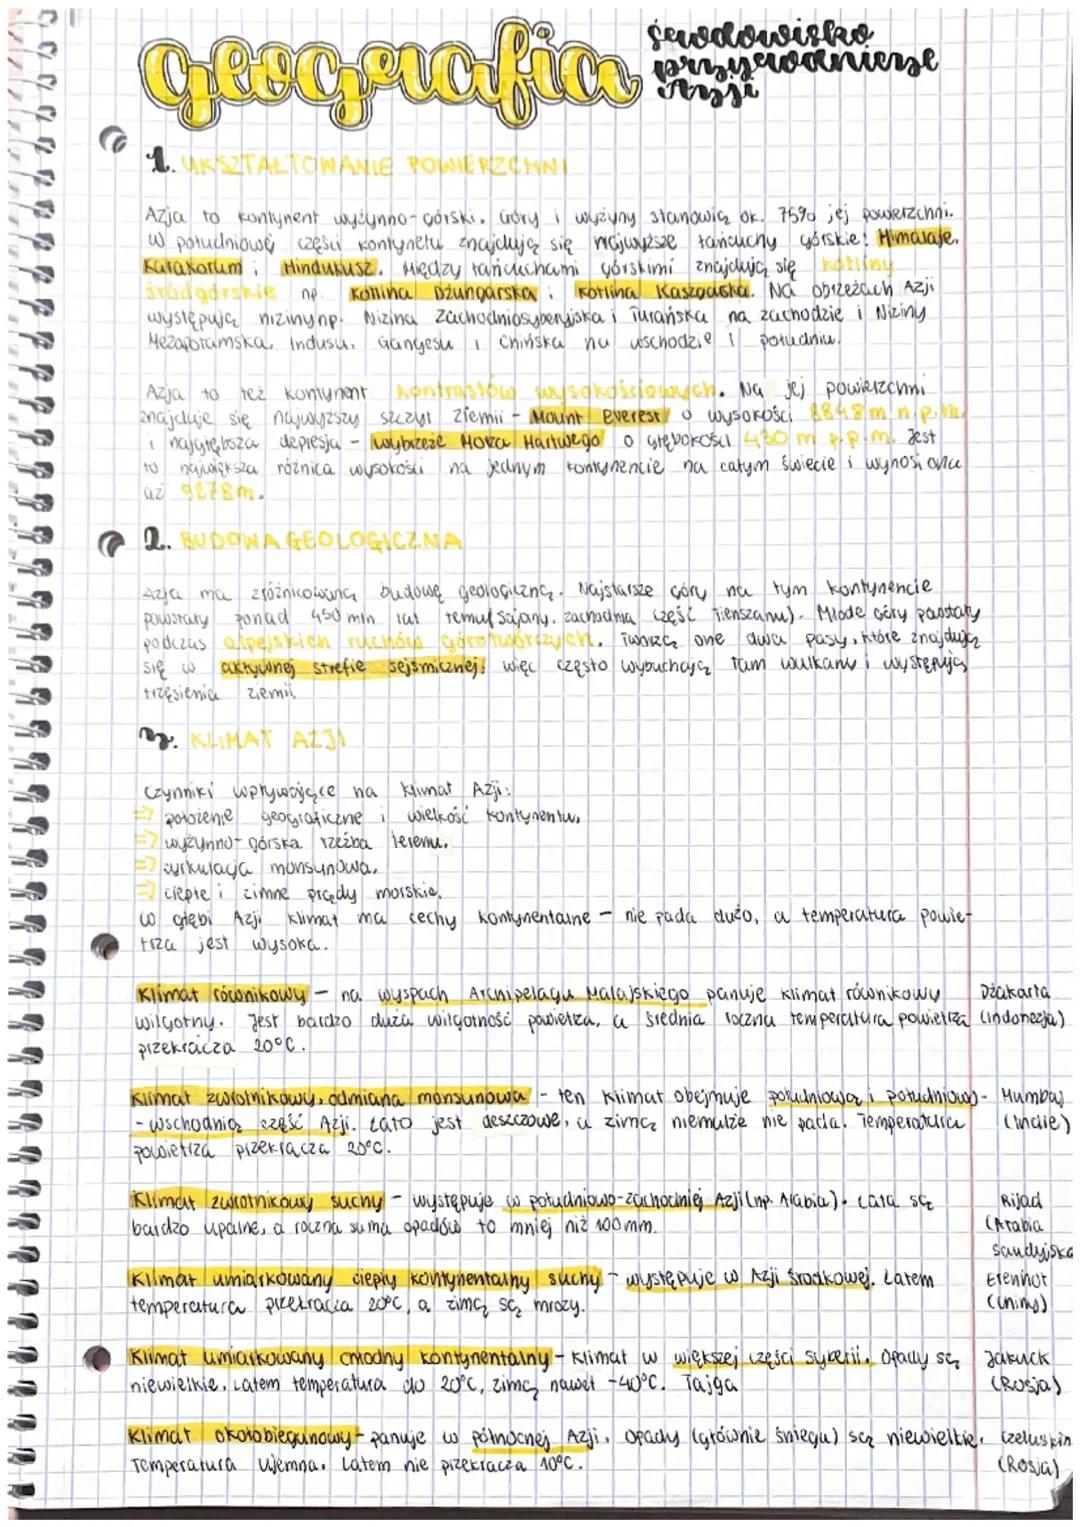 geografia
środowisko
przyrodnicze
Azji
1. UKSZTAŁTOWANIE POWIERZCHNI
Azja to kontynent wyżynno-górski. Góry i wyżyny stanowią ok. 75% jej powierzchni.
W południowej części kontynetu znajdują się najwyższe łańcuchy górskie: Himalaje,
Karakorum i Hindukusz. Między łańcuchami górskimi znajdują się kotliny
śródgórskie np. Kotlina Dżungarska i Kotlina Kaszgarska. Na obrzeżach Azji
występują niziny np. Nizina Zachodniosyberyjska i Turańska na zachodzie i Niziny
Mezopotamska, Indusu, Gangesu i Chińska na wschodzie i południu.
Azja to też kontynent kontrastów wysokościowych. Na jej powierzchni
znajduje się najwyższy szczyt ziemii - Mount Everest o wysokości 8848 m n.p.m.
i najgłębsza depresja - wybrzeże Morza Martwego o głębokości 430 m p.p.m. Jest
to największa różnica wysokości na jednym kontynencie na całym świecie i wynosi ona
aż 9278m.
2. BUDOWA GEOLOGICZNA
Azja ma zróżnicowaną budowę geologiczną. Najstarsze góry na tym kontynencie
powstały ponad 450 mln lat temu (Sajany, zachodnia część Tienszanu). Młode góry powstały
podczas alpejskich ruchów górotwórczych. Tworzą one dwa pasy, które znajdują
się w aktywnej strefie sejsmicznej, więc często wybuchają tam wulkany i występują
trzęsienia ziemii.
3. KLIMAT AZJI
Czynniki wpływające na klimat Azji:
=> położenie geograficzne i wielkość kontynentu,
=> wyżynno-górska rzeźba terenu,
=> cyrkulacja monsunowa,
=> ciepłe i zimne prądy morskie.
W głębi Azji klimat ma cechy kontynentalne - nie pada dużo, a temperatura powie-
trza jest wysoka.
Klimat równikowy - na wyspach Archipelagu Malajskiego panuje klimat równikowy Dżakarta
wilgotny. Jest bardzo duża wilgotność powietrza, a średnia roczna temperatura powietrza (Indonezja)
przekracza 20°C.
Klimat zwrotnikowy, odmiana monsunowa - ten klimat obejmuje południową i południowo- Mumbaj
-wschodnią część Azji. Lato jest deszczowe, a zimą niemalże nie pada. Temperatura (Indie)
powietrza przekracza 20°C.
Klimat zwrotnikowy suchy - występuje w południowo-zachodniej Azji (np. Arabia). Lata są Rijad
bardzo upalne, a roczna suma opadów to mniej niż 100mm. (Arabia
Saudyjska
Klimat umiarkowany ciepły kontynentalny suchy - występuje w Azji Środkowej. Latem Erenhot
temperatura przekracza 20°C, a zimą są mrozy. (Chiny)
Klimat umiarkowany chłodny kontynentalny - klimat w większej części Syberii. Opady są Jakuck
niewielkie. Latem temperatura do 20°C, zimą nawet -40°C. Tajga (Rosja)
Klimat okołobiegunowy - panuje w północnej Azji. Opady (głównie śniegu) są niewielkie. Czeluskin
Temperatura ujemna. Latem nie przekracza 10°C. (Rosja)